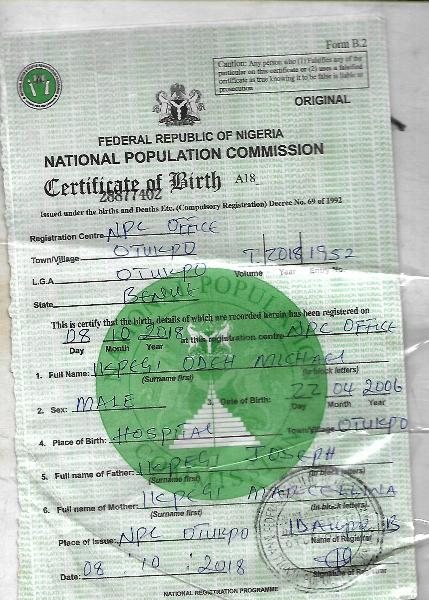 Form B.2
Caution: Any person who (1) Falsifies any of the
particular on this certificate or (2) uses a falsified
certificate as true knowing it to be false is liable to
prosecution
ORIGINAL
FEDERAL REPUBLIC OF NIGERIA
NATIONAL POPULATION COMMISSION
Certificate of Birth A18
28877402
Issued under the births and Deaths Etc. (Compulsory Registration) Decree No. 69 of 1992
Registration Centre NPC OFFICE
Town/Village OTUKPO
L.G.A OTUKPO Volume 1 Year 2018 Entry No 1952
State BENUE
This is certify that the birth, details of which are recorded herein has been registered on
08 10 2018 at this registration centre NPC OFFICE
Day Month Year
1. Full Name: IKPEGI ODEH MICHAEL
(Surname first) (In block letters)
2. Sex: MALE 3. Date of Birth: 22 04 2006
Day Month Year
4. Place of Birth: HOSPITAL Town/Village OTUKPO
5. Full name of Father: IKPEGI JOSEPH
(Surname first) (In block letters)
6. Full name of Mother: IKPEGI MARCELLINA
(Surname first) (In block letters)
Place of Issue: NPC OTUKPO
Name of Registrar
Date: 08 10 2018 Signature of Registrar
NATIONAL REGISTRATION PROGRAMME